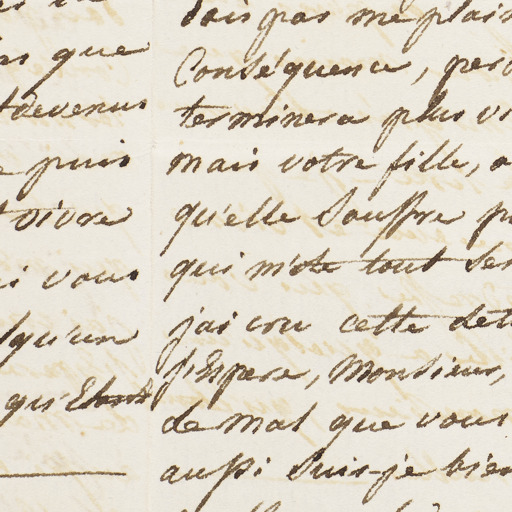 que
devenus
puis
vivre
vous
qu'un
qu'
dois pas me plain
Conséquence, per
terminera plus
mais votre fille, a
qu'elle Souffre p
qui m'ote tout Se
j'ai cru cette det
j'Espere, Monsieur,
de mal que vous
aussi Suis-je bien